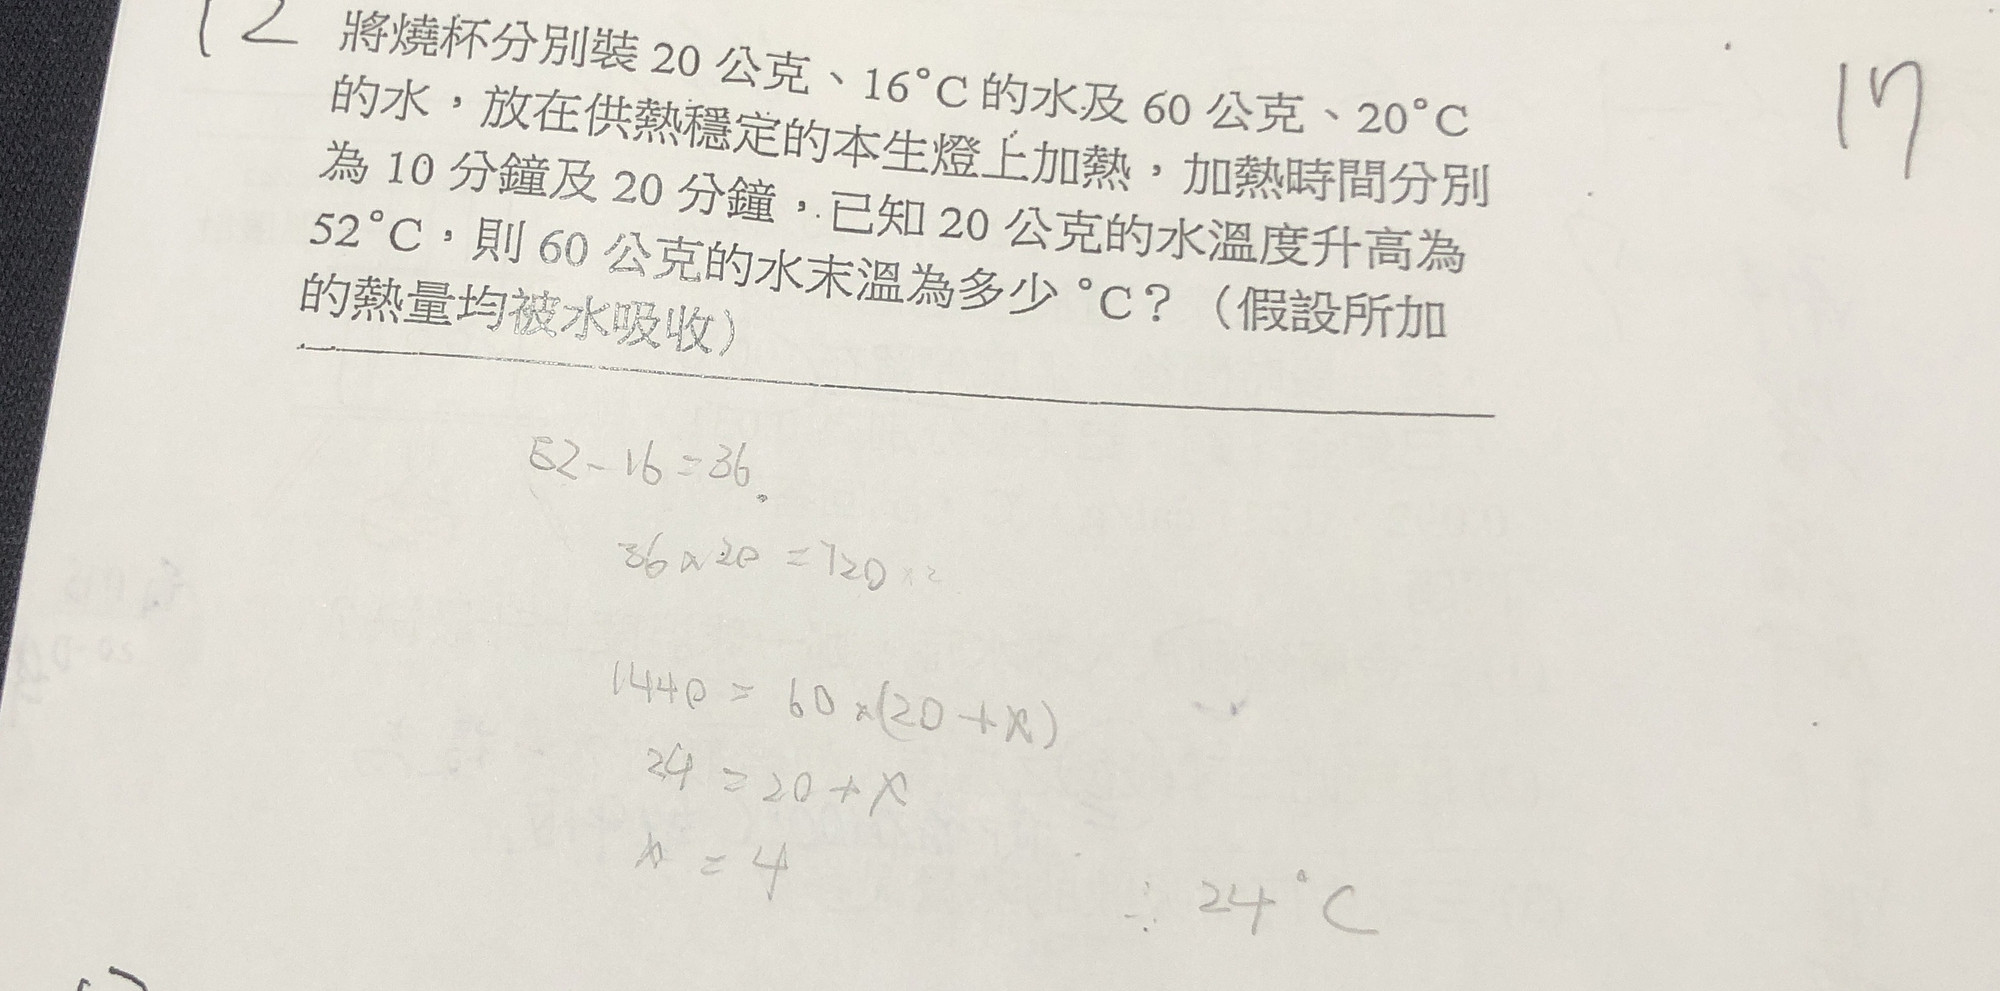 12 將燒杯分別裝 20 公克、16°C 的水及 60 公克、20°C
的水，放在供熱穩定的本生燈上加熱，加熱時間分別
為 10 分鐘及 20 分鐘，已知 20 公克的水溫度升高為
52°C，則 60 公克的水末溫為多少 °C？（假設所加
的熱量均被水吸收）
17
52-16=36
36×20=720×2
1440=60×(20+x)
24=20+x
x=4
∴ 24°C